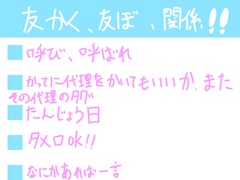 友かく、友ぼ、関係!!
呼び、呼ばれ
かってに代理をかいてもいいか、また
その代理のタグ
たんじょう日
タメ口ok!!
なにかあれば一言